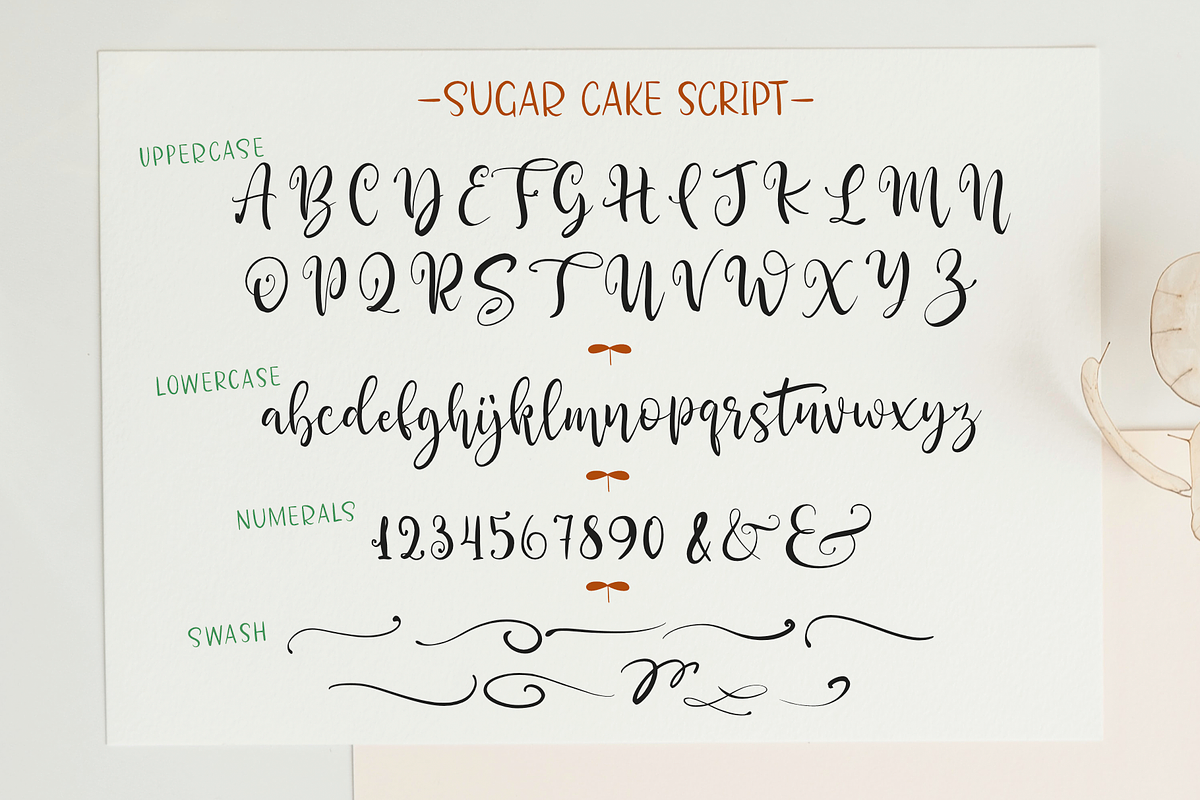 -SUGAR CAKE SCRIPT-
UPPERCASE
A B C D E F G H I J K L M N
O P Q R S T U V W X Y Z
LOWERCASE
abcdefghijklmnopqrstuvwxyz
NUMERALS
1234567890 & & &
SWASH